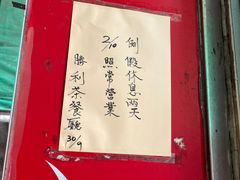 例假休息兩天
2/10照常營業
勝利茶餐廳
30/9